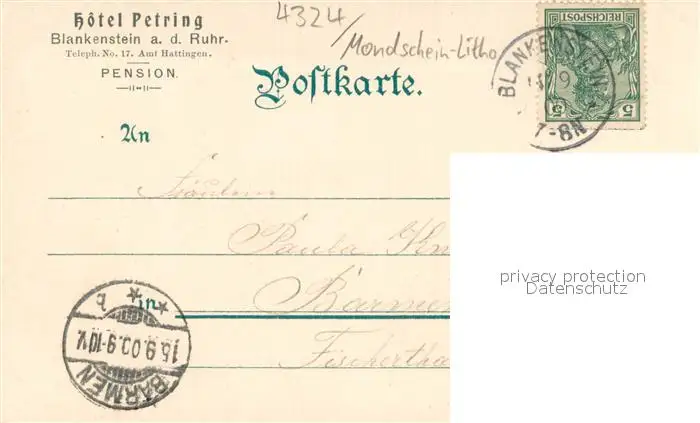 Hôtel Petring
Blankenstein a. d. Ruhr.
Teleph. No. 17. Amt Hattingen.
PENSION.
4324/
Mondschein-Litho
Postkarte.
BLANKENSTEIN
7-8N
REICHSPOST
5 5
An
Fräulein
Paula
in Barmen
Fischertha
BARMEN
15.9.00.9-10V.
b
privacy protection
Datenschutz